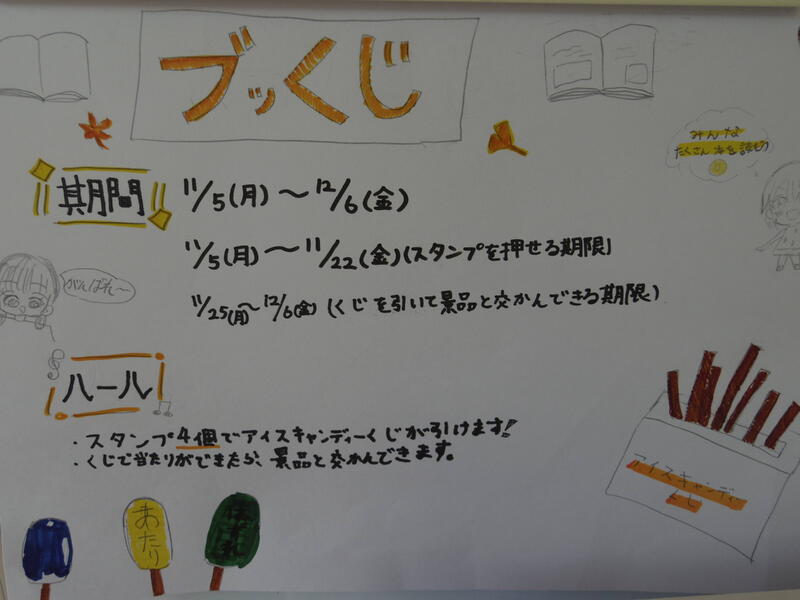 ブックじ
みんな
たくさん本を読もう
期間
11/5(月)〜12/6(金)
11/5(月)〜11/22(金)(スタンプを押せる期限)
11/25(月)〜12/6(金)(くじを引いて景品と交かんできる期限)
がんばれ〜
ルール
・スタンプ4個でアイスキャンディーくじが引けます!!
・くじで当たりがでたら、景品と交かんできます。
アイスキャンディー
くじ
あたり